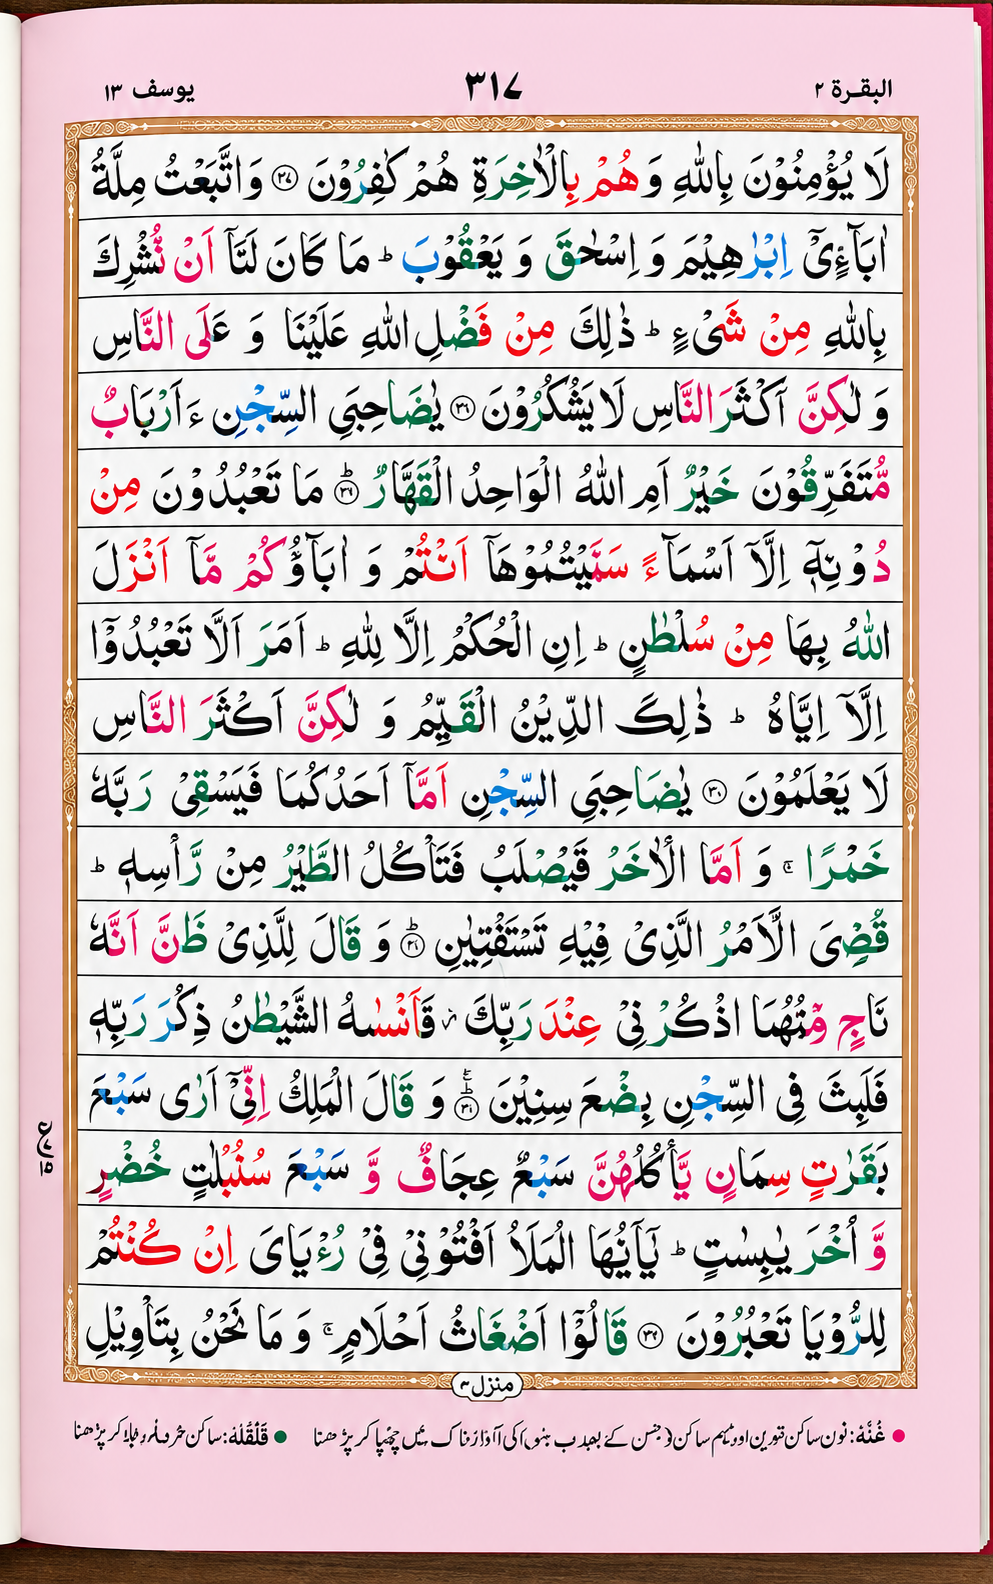 البقرة ٢
٣١٧
يوسف ١٣
لَا يُؤْمِنُوْنَ بِاللّٰهِ وَهُمْ بِالْاٰخِرَةِ هُمْ كٰفِرُوْنَ ﴿٣٧﴾ وَاتَّبَعْتُ مِلَّةَ
اٰبَآءِيْٓ اِبْرٰهِيْمَ وَ اِسْحٰقَ وَ يَعْقُوْبَ ؕ مَا كَانَ لَنَآ اَنْ نُّشْرِكَ
بِاللّٰهِ مِنْ شَيْءٍ ؕ ذٰلِكَ مِنْ فَضْلِ اللّٰهِ عَلَيْنَا وَ عَلَى النَّاسِ
وَ لٰكِنَّ اَكْثَرَ النَّاسِ لَا يَشْكُرُوْنَ ﴿٣٨﴾ يٰصَاحِبَيِ السِّجْنِ ءَاَرْبَابٌ
مُّتَفَرِّقُوْنَ خَيْرٌ اَمِ اللّٰهُ الْوَاحِدُ الْقَهَّارُ ﴿٣٩﴾ مَا تَعْبُدُوْنَ مِنْ
دُوْنِهٖٓ اِلَّآ اَسْمَآءً سَمَّيْتُمُوْهَآ اَنْتُمْ وَ اٰبَآؤُكُمْ مَّآ اَنْزَلَ
اللّٰهُ بِهَا مِنْ سُلْطٰنٍ ؕ اِنِ الْحُكْمُ اِلَّا لِلّٰهِ ؕ اَمَرَ اَلَّا تَعْبُدُوْٓا
اِلَّآ اِيَّاهُ ؕ ذٰلِكَ الدِّيْنُ الْقَيِّمُ وَ لٰكِنَّ اَكْثَرَ النَّاسِ
لَا يَعْلَمُوْنَ ﴿٤٠﴾ يٰصَاحِبَيِ السِّجْنِ اَمَّآ اَحَدُكُمَا فَيَسْقِيْ رَبَّهٗ
خَمْرًا ۚ وَ اَمَّا الْاٰخَرُ فَيُصْلَبُ فَتَاْكُلُ الطَّيْرُ مِنْ رَّاْسِهٖ ؕ
قُضِيَ الْاَمْرُ الَّذِيْ فِيْهِ تَسْتَفْتِيٰنِ ﴿٤١﴾ وَ قَالَ لِلَّذِيْ ظَنَّ اَنَّهٗ
نَاجٍ مِّنْهُمَا اذْكُرْنِيْ عِنْدَ رَبِّكَ ؗ فَاَنْسٰىهُ الشَّيْطٰنُ ذِكْرَ رَبِّهٖ
فَلَبِثَ فِي السِّجْنِ بِضْعَ سِنِيْنَ ﴿٤٢﴾ وَ قَالَ الْمَلِكُ اِنِّيْٓ اَرٰى سَبْعَ
بَقَرٰتٍ سِمَانٍ يَّاْكُلُهُنَّ سَبْعٌ عِجَافٌ وَّ سَبْعَ سُنْبُلٰتٍ خُضْرٍ
وَّ اُخَرَ يٰبِسٰتٍ ؕ يٰٓاَيُّهَا الْمَلَاُ اَفْتُوْنِيْ فِيْ رُءْيَايَ اِنْ كُنْتُمْ
لِلرُّءْيَا تَعْبُرُوْنَ ﴿٤٣﴾ قَالُوْٓا اَضْغَاثُ اَحْلَامٍ ۚ وَ مَا نَحْنُ بِتَاْوِيْلِ
منزل ٣
غُنَّه: نون ساکن
قَلْقَلَه: ساکن